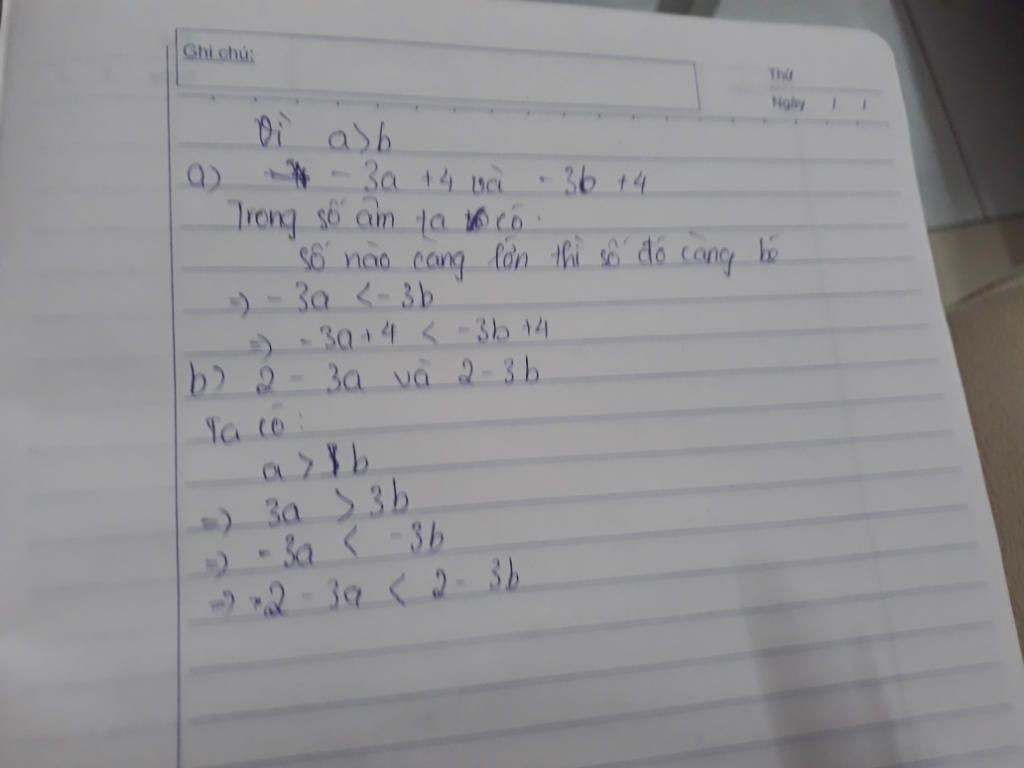 Ghi chú:
Thứ
Ngày / /
Vì a>b
a) -3a +4 và -3b +4
Trong số âm ta có:
số nào càng lớn thì số đó càng bé
=> -3a < -3b
=> -3a+4 < -3b+4
b) 2 - 3a và 2-3b
Ta có:
a > b
=> 3a > 3b
=> -3a < -3b
=> 2 - 3a < 2 - 3b